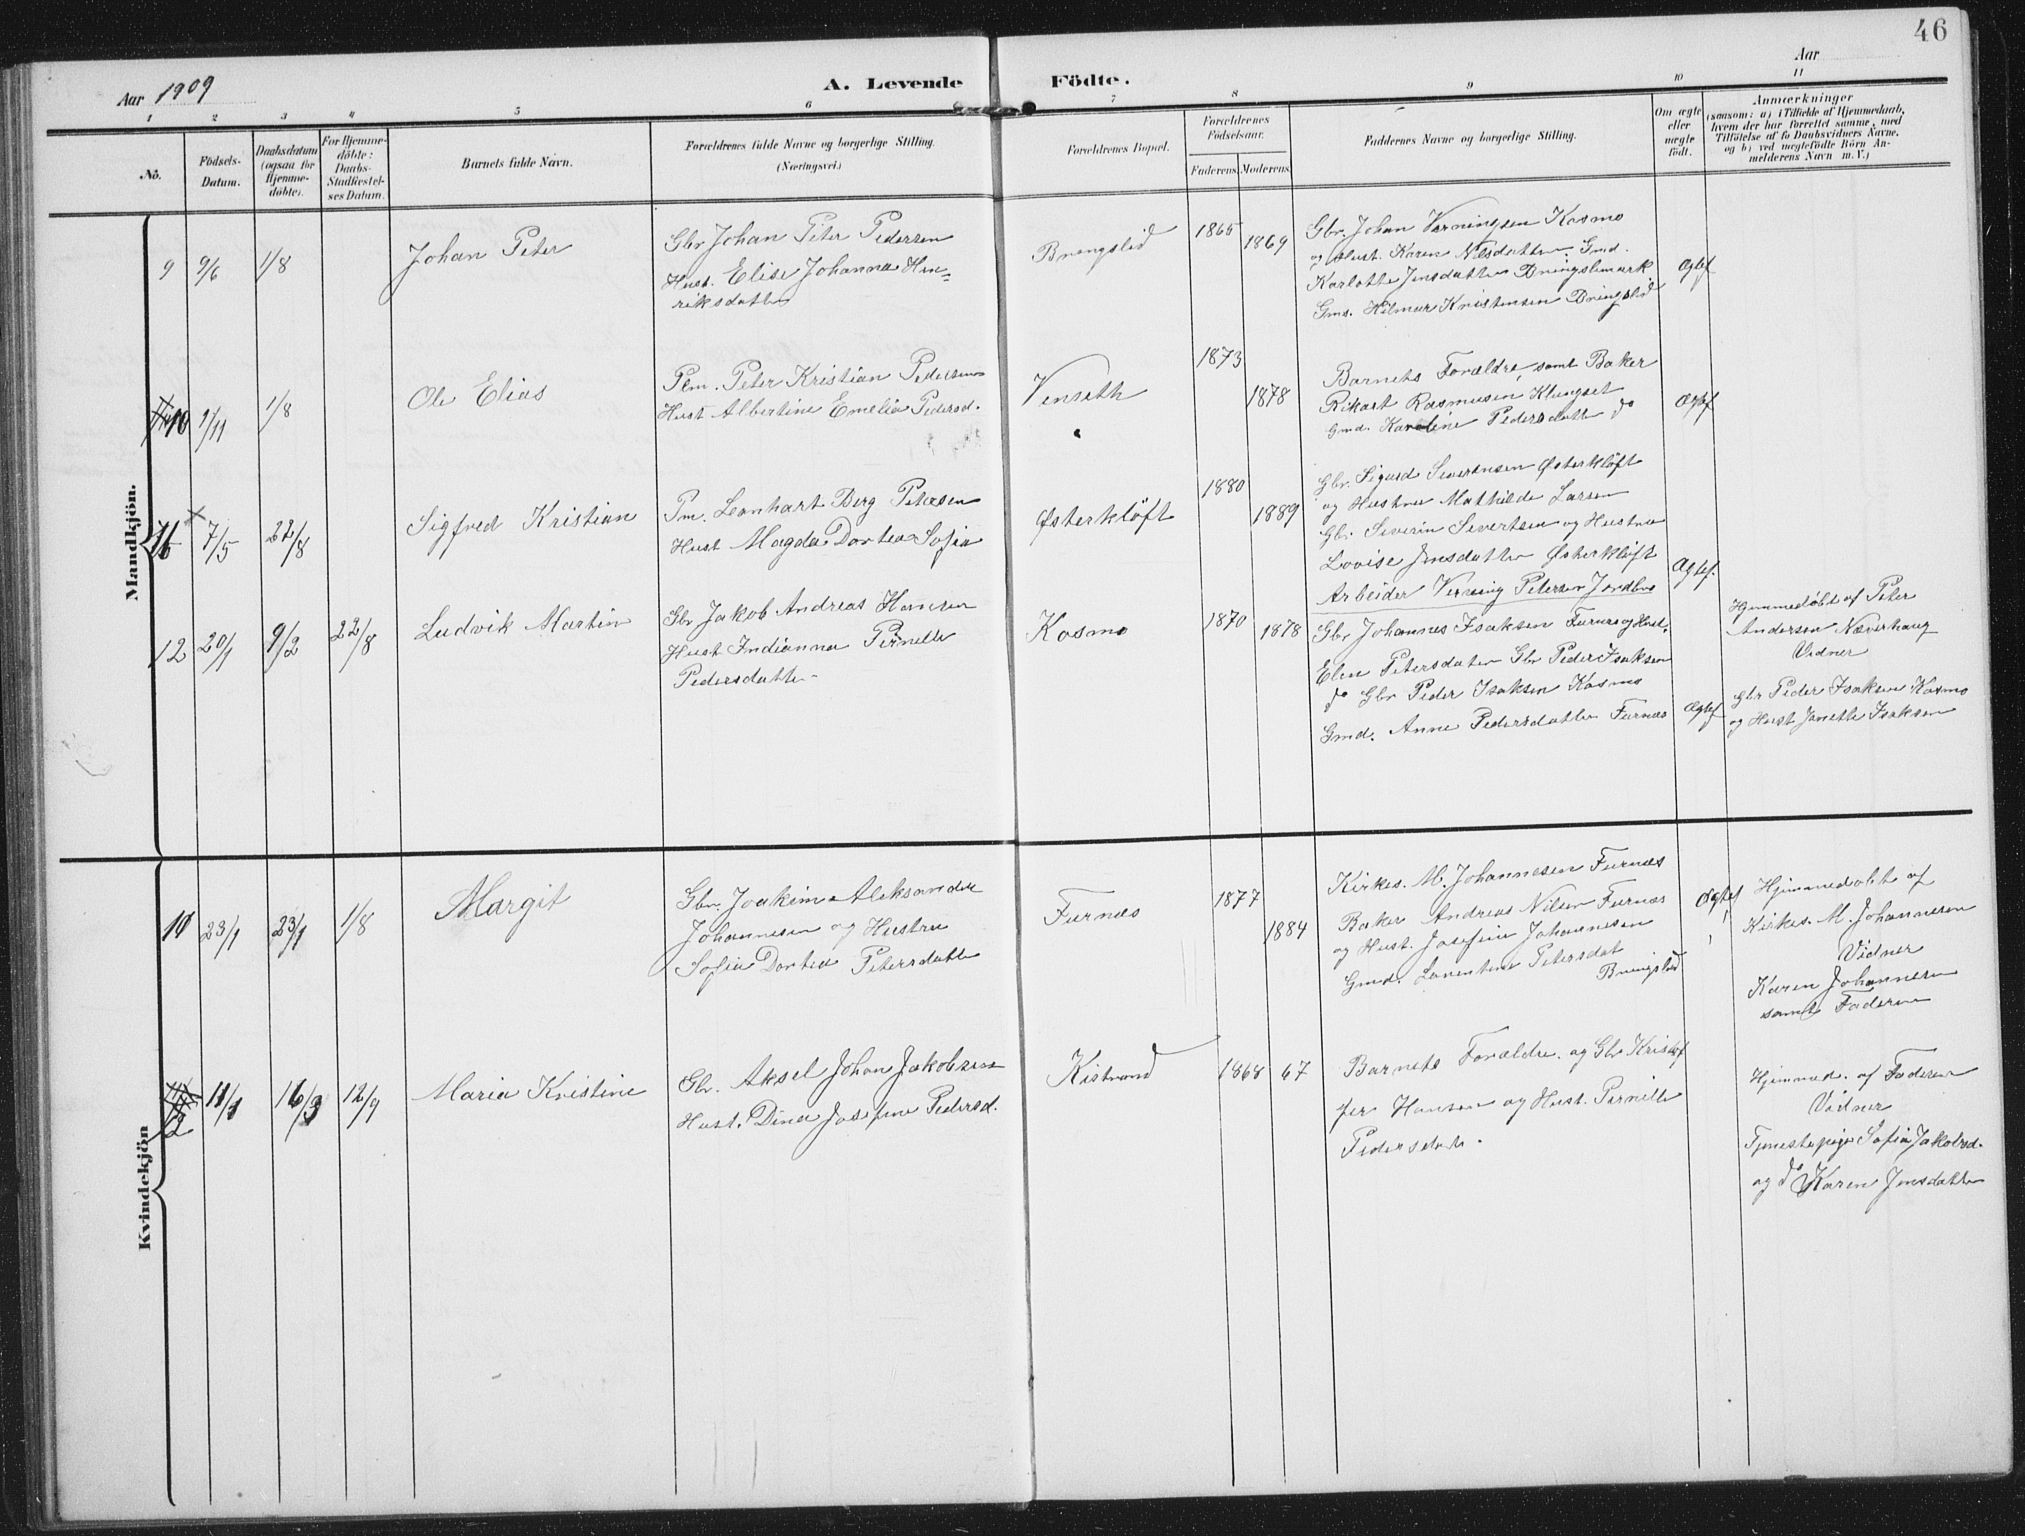 46
Aar 1909
A. Levende Födte.
Aar
1 2 3 4 5 6 7 8 9 10 11
No.
Födsels-
Datum.
Daabsdatum
(ogsaa for
Hjemme-
døbte).
For Hjemme-
døbte:
Daabs-
Stadfæstel-
ses Datum.
Barnets fulde Navn.
Forældrenes fulde Navne og borgerlige Stilling.
(Næringsvei.)
Forældrenes Bopæl.
Forældrenes
Födselsaar.
Faderens. Moderens.
Faddernes Navne og borgerlige Stilling.
Om ægte
eller
uægte
født.
Anmærkninger
(saasom: a) i Tilfælde af Hjemmedaab,
hvem der har forrettet samme, med
Tilföielse af to Daabsvidners Navne,
og b) ved uægtefödte Börn An-
melderens Navn m. V.)
Mandkjön.
9 9/6 1/8
Johan Peter
Gbr Johan Peter Pedersen
Hust. Elise Johanna Hen-
riksdatter
Bringslid
1865 1869
Gbr. Johan Verningsen Kosmo
og Hust. Karen Nilsdatter. Gmd.
Karlotte Jensdatter Bringslimark
Gms. Hilmar Kristensen Bringslid
Ægtef
10 1/11 1/8
Ole Elias
Plm. Peter Kristian Pedersen
Hust Albertine Emelia Pedersd.
Venseth
1873 1878
Barnets Forældre, samt Baker
Rikart Rasmusen Klungset
Gmd. Karoline Pedersdatter do
Ægtef
7/5 22/8
Sigfred Kristian
Pm. Leonhart Berg Petersen
Hust Magda Dortea Sofia
Østerkløft
1880 1889
Gbr. Sigurd Severinsen Østerkløft
og Hustru Mathilde Larsen
Gbr Severin Sivertsen og Hustru
Lovise Jensdatter Østerkløft
Arbeider Verning Petersen Jordbro
Ægtef.
12 20/1 9/2 22/8
Ludvik Martin
Gbr Jakob Andreas Hansen
Hust Indianna Pernille
Pedersdatter
Kosmo
1870 1878
Gbr Johannes Isaksen Furnes og Hust.
Elen Petersdatter Gbr Peder Isaksen
do Gbr Peder Isaksen Kosmo
Gmd. Anne Pedersdatter Furnæs
Ægtef
Hjemmedøbt af Peter
Andersen Næverhaug
Vidner
Gbr Peder Isaksen Kosmo
og Hust Janette Isaksen
Kvindekjön
11 23/1 23/1 1/8
Margit
Gbr. Joakim Aleksander
Johannesen og Hustru
Sofia Dortea Petersdatter
Furnæs
1877 1884
Kirkes. M. Johannesen Furnæs
Baker Andreas Nilsen Furnæs
og Hust. Josefine Johannesen
Gmd. Lorentine Petersdat
Bringslid
Ægtef
Hjemmedøbt af
Kirkes. M. Johannesen
Vidner
Karen Johannesen
samt Faderen
12 11/1 16/3 12/9
Maria Kristine
Gbr. Aksel Johan Jakobsen
Hust. Dina Josefine Pedersd.
Kistrand
1868 67
Barnets Forældre. og Gbr Kristof
fer Hansen og Hust. Pernille
Pedersdatr.
Hjemmed. af Faderen
Vidner
Tjenestepige Sofia Jakobsd.
og do Karen Jensdatter